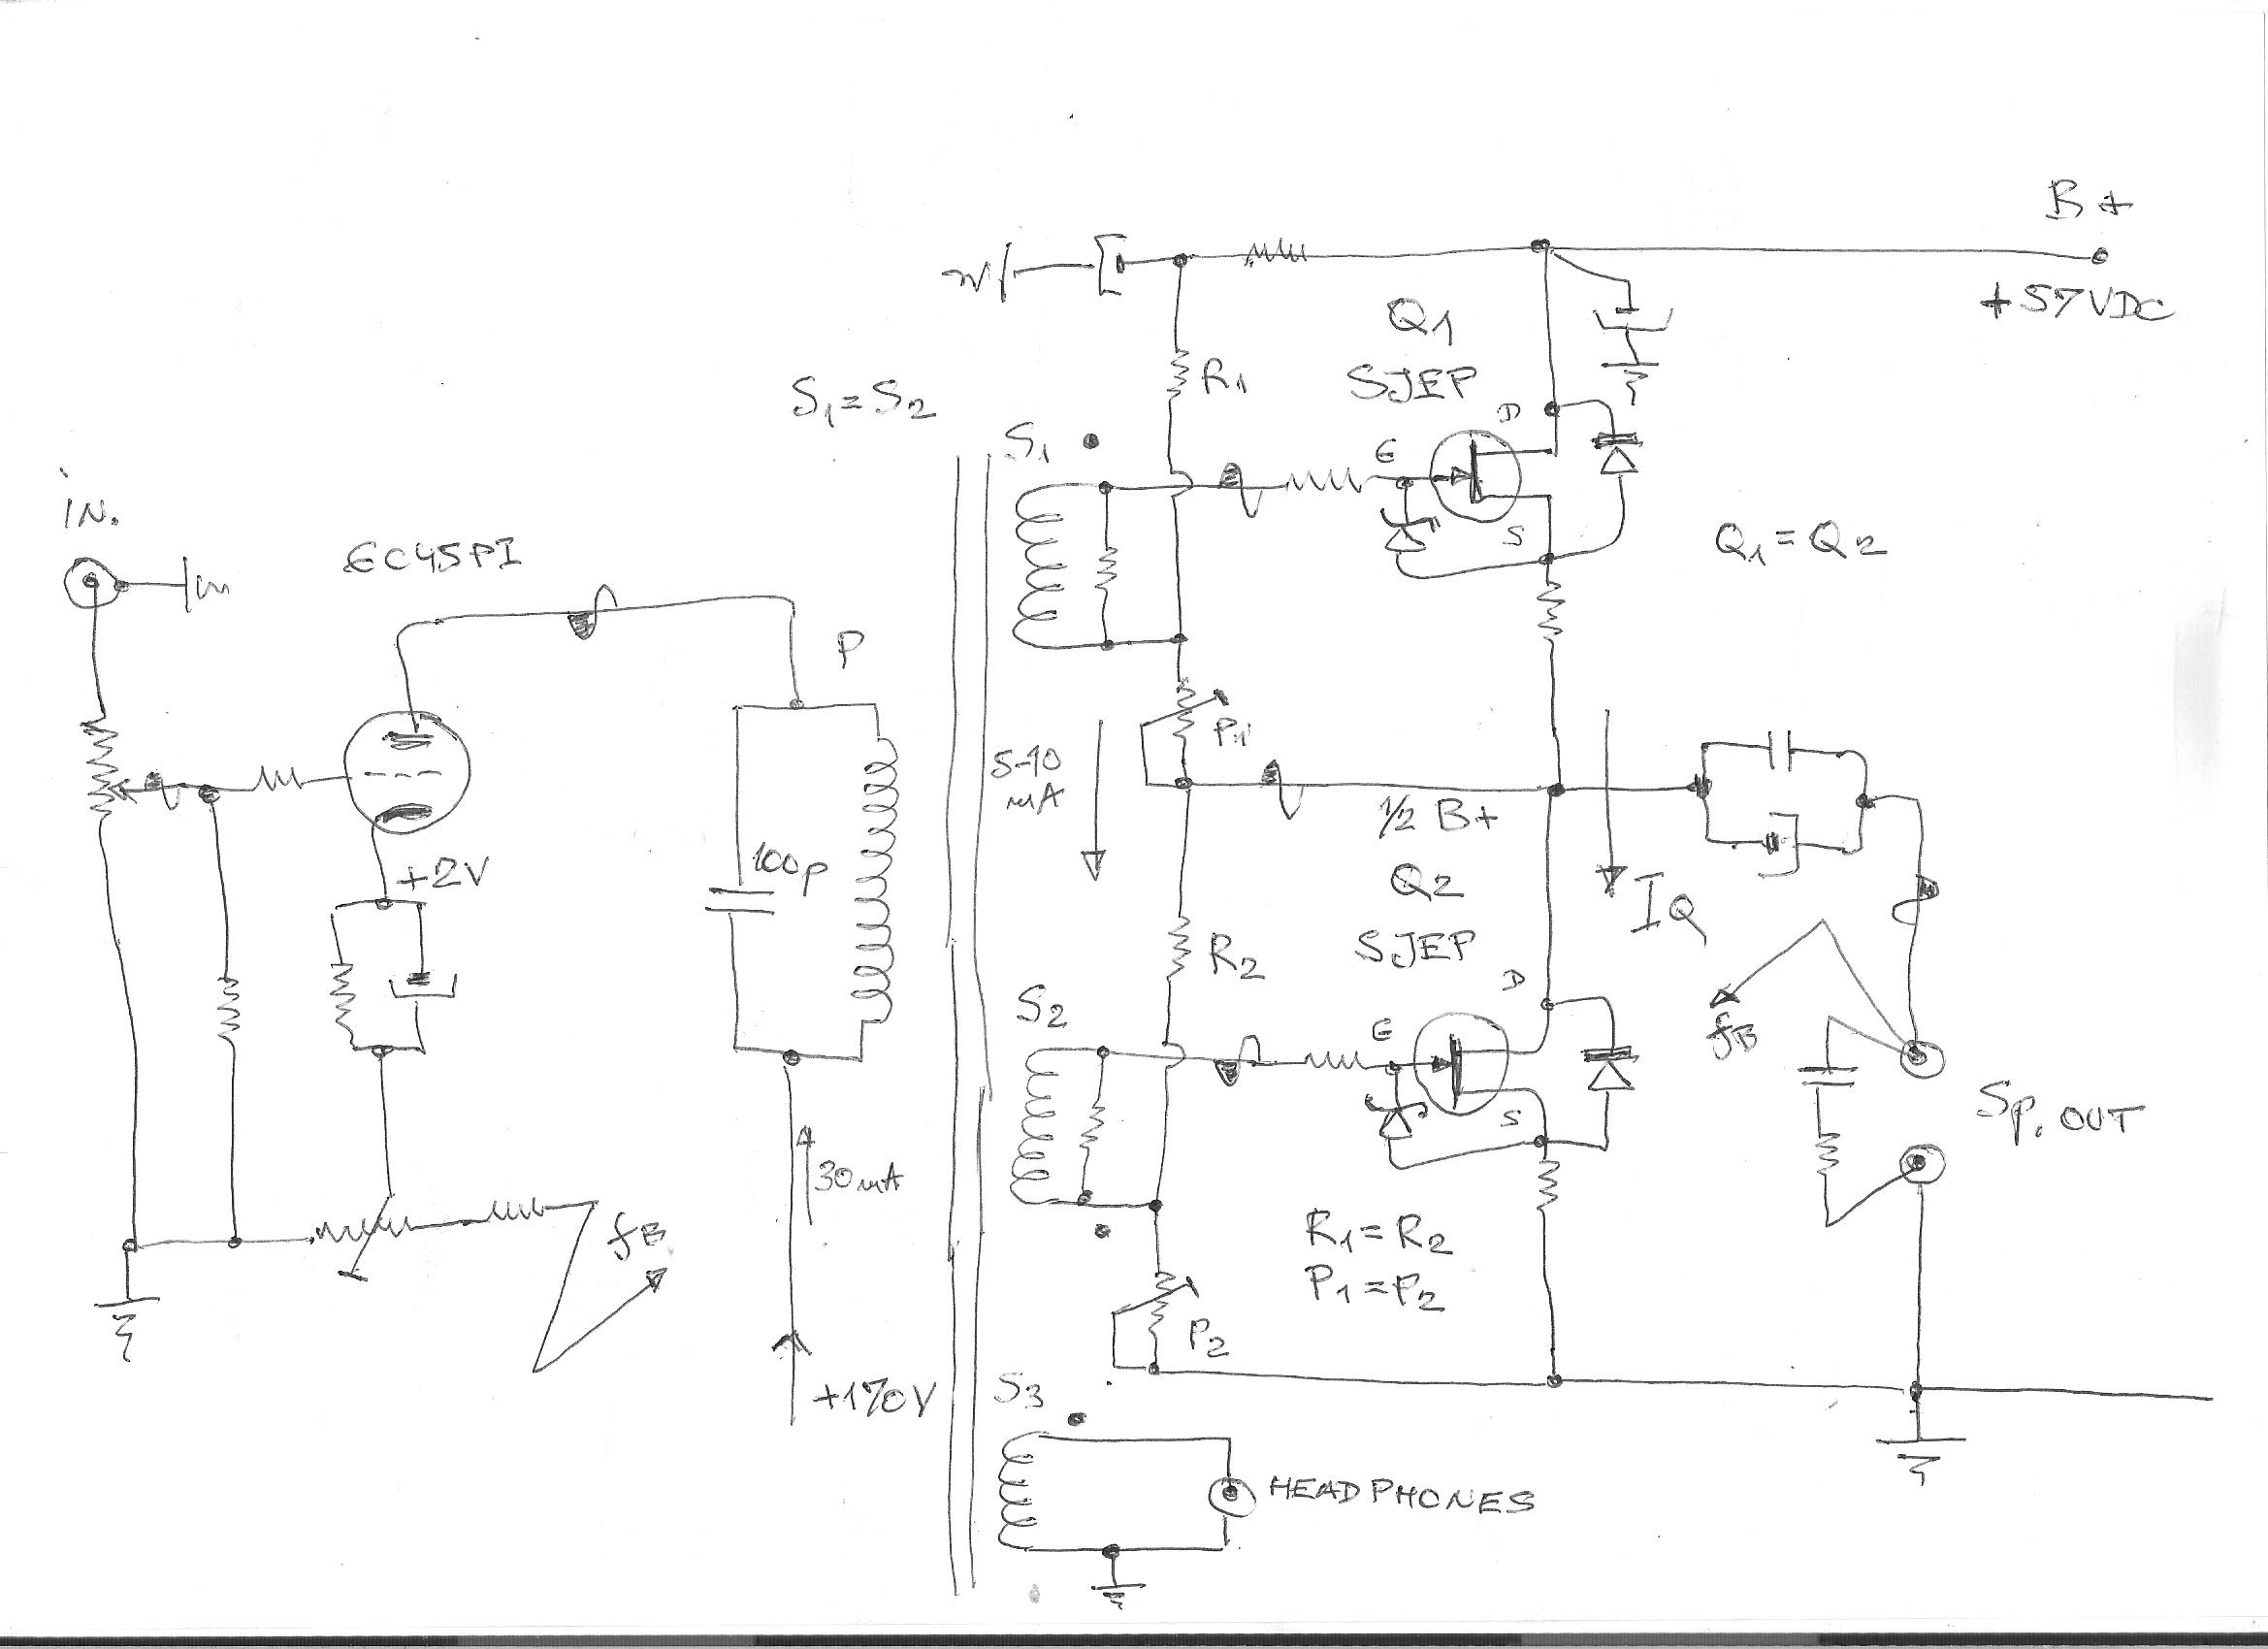 B+
+57VDC
Q1
SJEP
R1
S1=S2
S1
D
G
S
Q1=Q2
IN.
6C45PI
P
P1
5-10
mA
1/2 B+
Q2
SJEP
IQ
+2V
100p
R2
S2
D
G
S
fB
Sp. OUT
30mA
fB
R1=R2
P1=P2
P2
+170V
S3
HEADPHONES